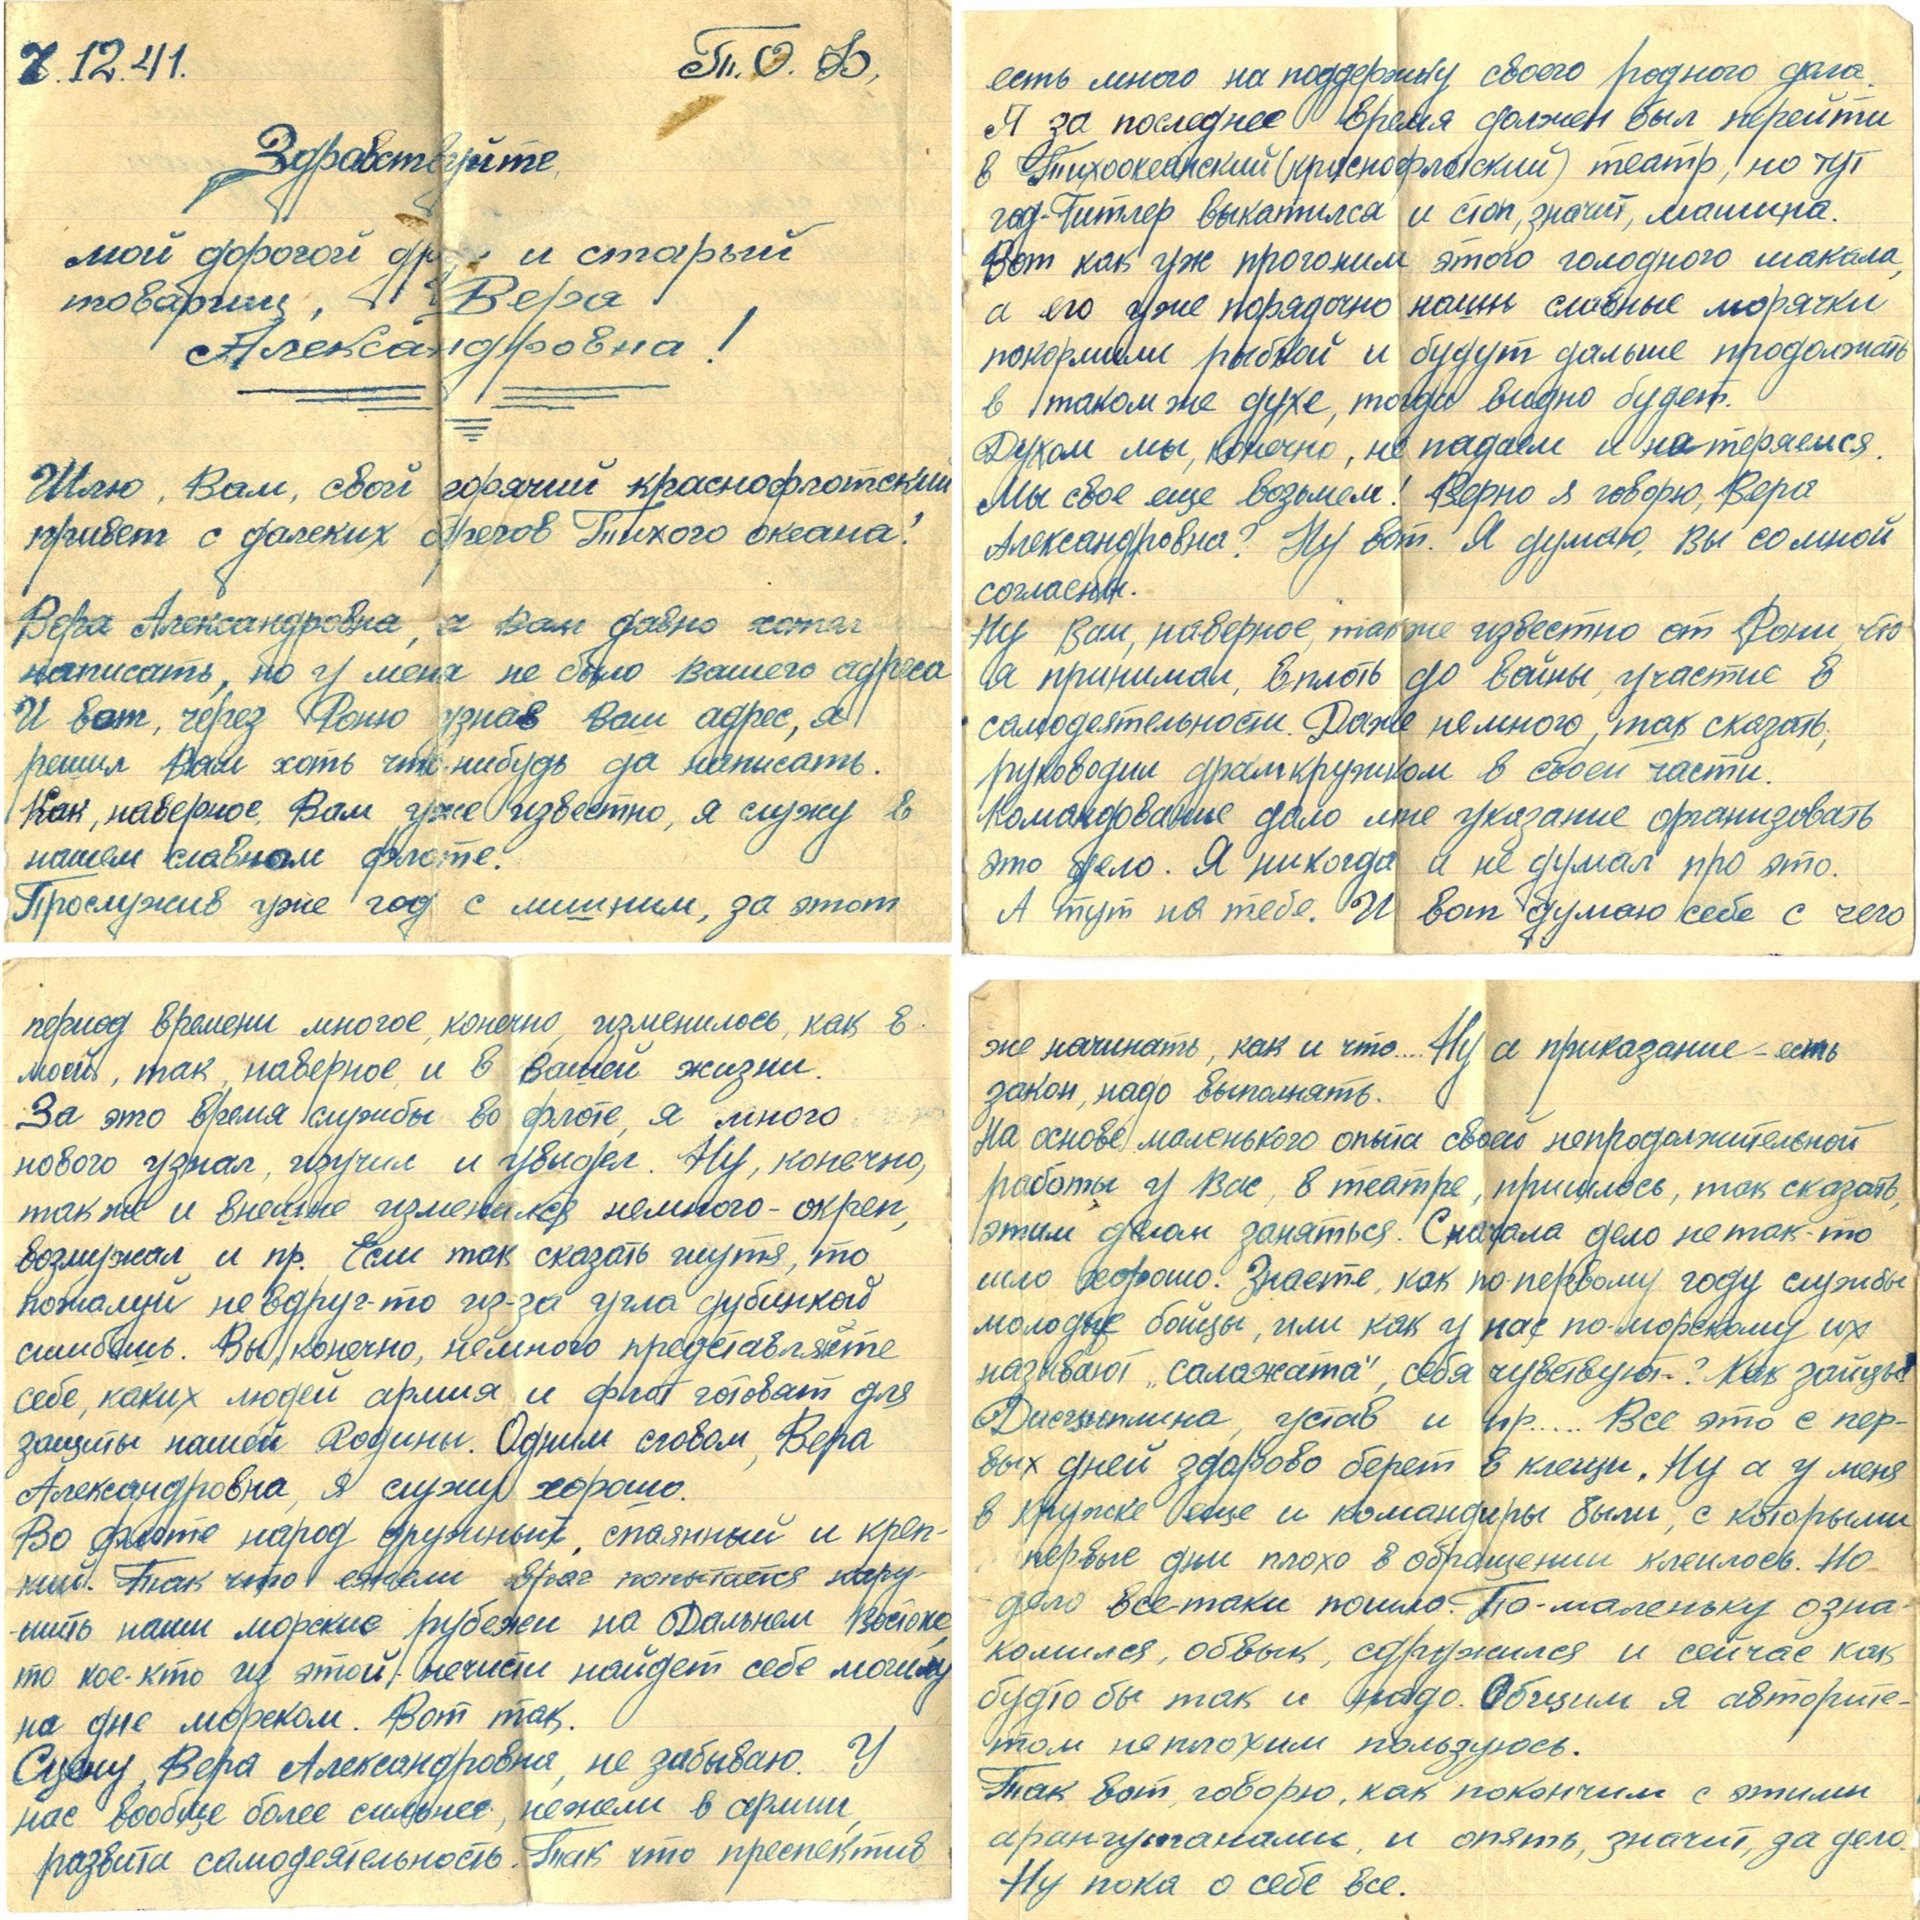 7.12.41. Т.О.Ф.
Здравствуйте,
мой дорогой друг и старый
товарищ, Вера
Александровна!
Шлю, Вам, свой горячий краснофлотский
привет с далеких брегов Тихого океана!
Вера Александровна, я Вам давно хотел
написать, но у меня не было Вашего адреса
И вот, через Фоню узнав Ваш адрес, я
решил Вам хоть что-нибудь да написать.
Как, наверное, Вам уже известно, я служу в
нашем славном флоте.
Прослужив уже год с лишним, за этот
период времени многое, конечно, изменилось, как в
моей, так, наверное, и в Вашей жизни.
За это время службы во флоте, я много
нового узнал, изучил и увидел. Ну, конечно,
также и внешне изменился немного - окреп,
возмужал и пр. Если так сказать шутя, то
пожалуй не вдруг-то из-за угла дубинкой
сшибешь. Вы, конечно, немного представляете
себе, каких людей армия и флот готовят для
защиты нашей Родины. Одним словом, Вера
Александровна, я служу хорошо.
Во флоте народ дружный, спаянный и креп-
кий. Так что ежели враг попытается нару-
-шить наши морские рубежи на Дальнем Востоке,
то кое-кто из этой нечисти найдет себе могилу
на дне морском. Вот так.
Сцену, Вера Александровна, не забываю. У
нас вообще более сильнее, нежели в армии,
развита самодеятельность. Так что преспектив
есть много на поддержку своего родного дела.
Я за последнее время должен был перейти
в Тихоокеанский (краснофлотский) театр, но тут
гад-Гитлер выкатился и стоп, значит, машина.
Вот как уж прогоним этого голодного шакала,
а его уже порядочно наши славные морячки
покормили рыбкой и будут дальше продолжать
в таком же духе, тогда видно будет.
Духом мы, конечно, не падаем и не теряемся.
Мы свое еще возьмем! Верно я говорю, Вера
Александровна? Ну вот. Я думаю, Вы со мной
согласны.
Ну Вам, наверное, также известно от Фони, что
я принимал, вплоть до войны, участие в
самодеятельности. Даже немного, так сказать,
руководил драмкружком в своей части.
Командование дало мне указание организовать
это дело. Я никогда и не думал про это.
А тут на тебе. И вот думаю себе с чего
же начинать, как и что.... Ну а приказание - есть
закон, надо выполнять.
На основе маленького опыта своей непродолжительной
работы у Вас, в театре, пришлось, так сказать,
этим делом заняться. Сначала дело не так-то
шло хорошо. Знаете, как по-первому году службы
молодые бойцы, или как у нас по-морскому их
называют „салажата", себя чувствуют-? Как зайцы
Дисциплина, устав и пр..... Все это с пер-
вых дней здорово берет в клещи. Ну а у меня
в кружке еще и командиры были, с которыми
первые дни плохо в обращении клеилось. Но
дело все-таки пошло. По-маленьку озна-
комился, обвык, сдружился и сейчас как
будто бы так и надо. Общим я авторите-
том неплохим пользуюсь.
Так вот, говорю, как покончим с этими
арангутанами, и опять, значит, за дело.
Ну пока о себе все.